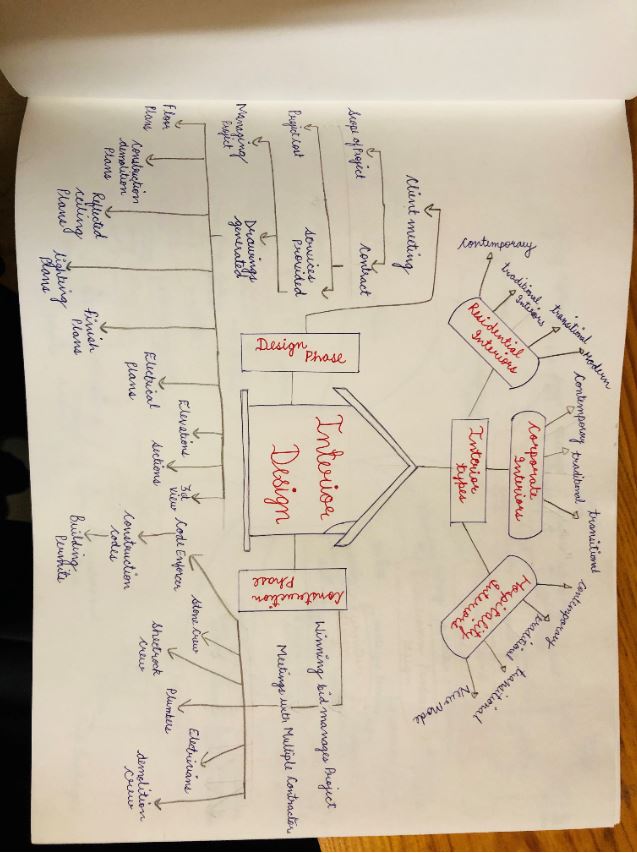 Contemporary
traditional
Interiors
transitional
Modern
Residential
Interiors
Contemporary
traditional
transitional
Corporate
Interiors
Contemporary
traditional
transitional
New Mode
Hospitality
Interiors
Interior
types
Interior
Design
Design
Phase
Client meeting
Scope of Project
Contract
Project cost
Services
Provided
Managing
Project
Drawings
generated
Floor
Plans
Construction
demolition
Plans
Reflected
ceiling
Plans
lighting
Plans
finish
Plans
Electrical
Plans
Elevations
Sections
3d
view
Construction
Phase
Winning bid manages Project
Meetings with Multiple Contractor
Code Enforcer
Construction
codes
Building
Permits
Stone crew
Sheetrock
crew
Plumbers
Electricians
demolition
crew